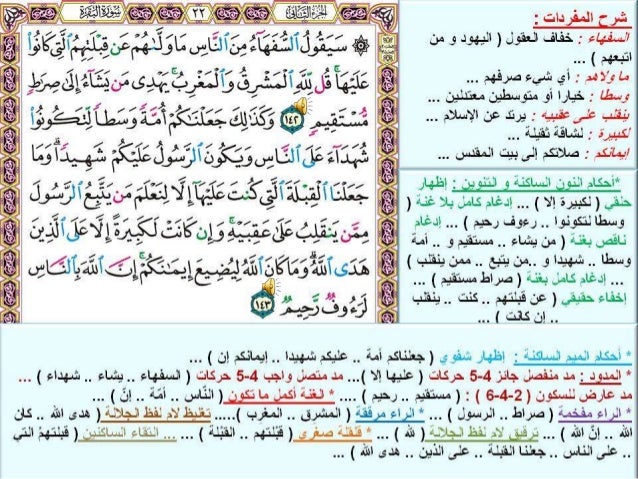 شرح المفردات :
السفهاء : خفاف العقول ( اليهود و من
اتبعهم ) ...
ما ولاهم : أي شيء صرفهم ...
وسطا : خيارا أو متوسطين معتدلين ...
ينقلب على عقبيه : يرتد عن الإسلام ...
لكبيرة : لشاقة ثقيلة ...
إيمانكم : صلاتكم إلى بيت المقدس ...
سُورَةُ البَقَرَةِ
٢٢
الجزء الثاني
۞ سَيَقُولُ ٱلسُّفَهَآءُ مِنَ ٱلنَّاسِ مَا وَلَّىٰهُمْ عَن قِبْلَتِهِمُ ٱلَّتِى كَانُوا۟
عَلَيْهَا ۚ قُل لِّلَّهِ ٱلْمَشْرِقُ وَٱلْمَغْرِبُ ۚ يَهْدِى مَن يَشَآءُ إِلَىٰ صِرَٰطٍ
مُّسْتَقِيمٍ ١٤٢ وَكَذَٰلِكَ جَعَلْنَٰكُمْ أُمَّةً وَسَطًا لِّتَكُونُوا۟
شُهَدَآءَ عَلَى ٱلنَّاسِ وَيَكُونَ ٱلرَّسُولُ عَلَيْكُمْ شَهِيدًا ۗ وَمَا
جَعَلْنَا ٱلْقِبْلَةَ ٱلَّتِى كُنتَ عَلَيْهَآ إِلَّا لِنَعْلَمَ مَن يَتَّبِعُ ٱلرَّسُولَ
مِمَّن يَنقَلِبُ عَلَىٰ عَقِبَيْهِ ۚ وَإِن كَانَتْ لَكَبِيرَةً إِلَّا عَلَى ٱلَّذِينَ
هَدَى ٱللَّهُ ۗ وَمَا كَانَ ٱللَّهُ لِيُضِيعَ إِيمَٰنَكُمْ ۚ إِنَّ ٱللَّهَ بِٱلنَّاسِ
لَرَءُوفٌ رَّحِيمٌ ١٤٣
*أحكام النون الساكنة و التنوين : إظهار
حلقي ( لكبيرة إلا ) ... إدغام كامل بلا غنة (
وسطا لتكونوا .. رءوف رحيم ) ... إدغام
ناقص بغنة ( من يشاء .. مستقيم و .. أمة
وسطا .. شهيدا و .. من يتبع .. ممن ينقلب )
... إدغام كامل بغنة ( صراط مستقيم ) ...
إخفاء حقيقي ( عن قبلتهم .. كنت .. ينقلب
.. إن كانت ) ...
* أحكام الميم الساكنة : إظهار شفوي ( جعلناكم أمة .. عليكم شهيدا .. إيمانكم إن ) ...
* المدود : مد منفصل جائز 4-5 حركات ( عليها إلا )... مد متصل واجب 4-5 حركات ( السفهاء .. يشاء .. شهداء ) ...
مد عارض للسكون ( 2-4-6 ) : ( مستقيم .. رحيم ) .... * الغنة أكمل ما تكون ( النّاس .. أمّة .. إنّ ) ...
* الراء مفخمة ( صراط .. الرسول ) ... * الراء مرفقة ( المشرق .. المغرب )..... تغليظ لام لفظ الجلالة ( هدى الله .. كان
الله .. إنّ الله ) ... ترقيق لام لفظ الجلالة ( لله ) ... * قلقلة صغرى ( قبْلتهم .. القبْلة ) ... ... التقاء الساكنين ( قبلتهمُ التي
.. على الناس .. جعلنا القبلة .. على الذين .. هدى الله ) ...